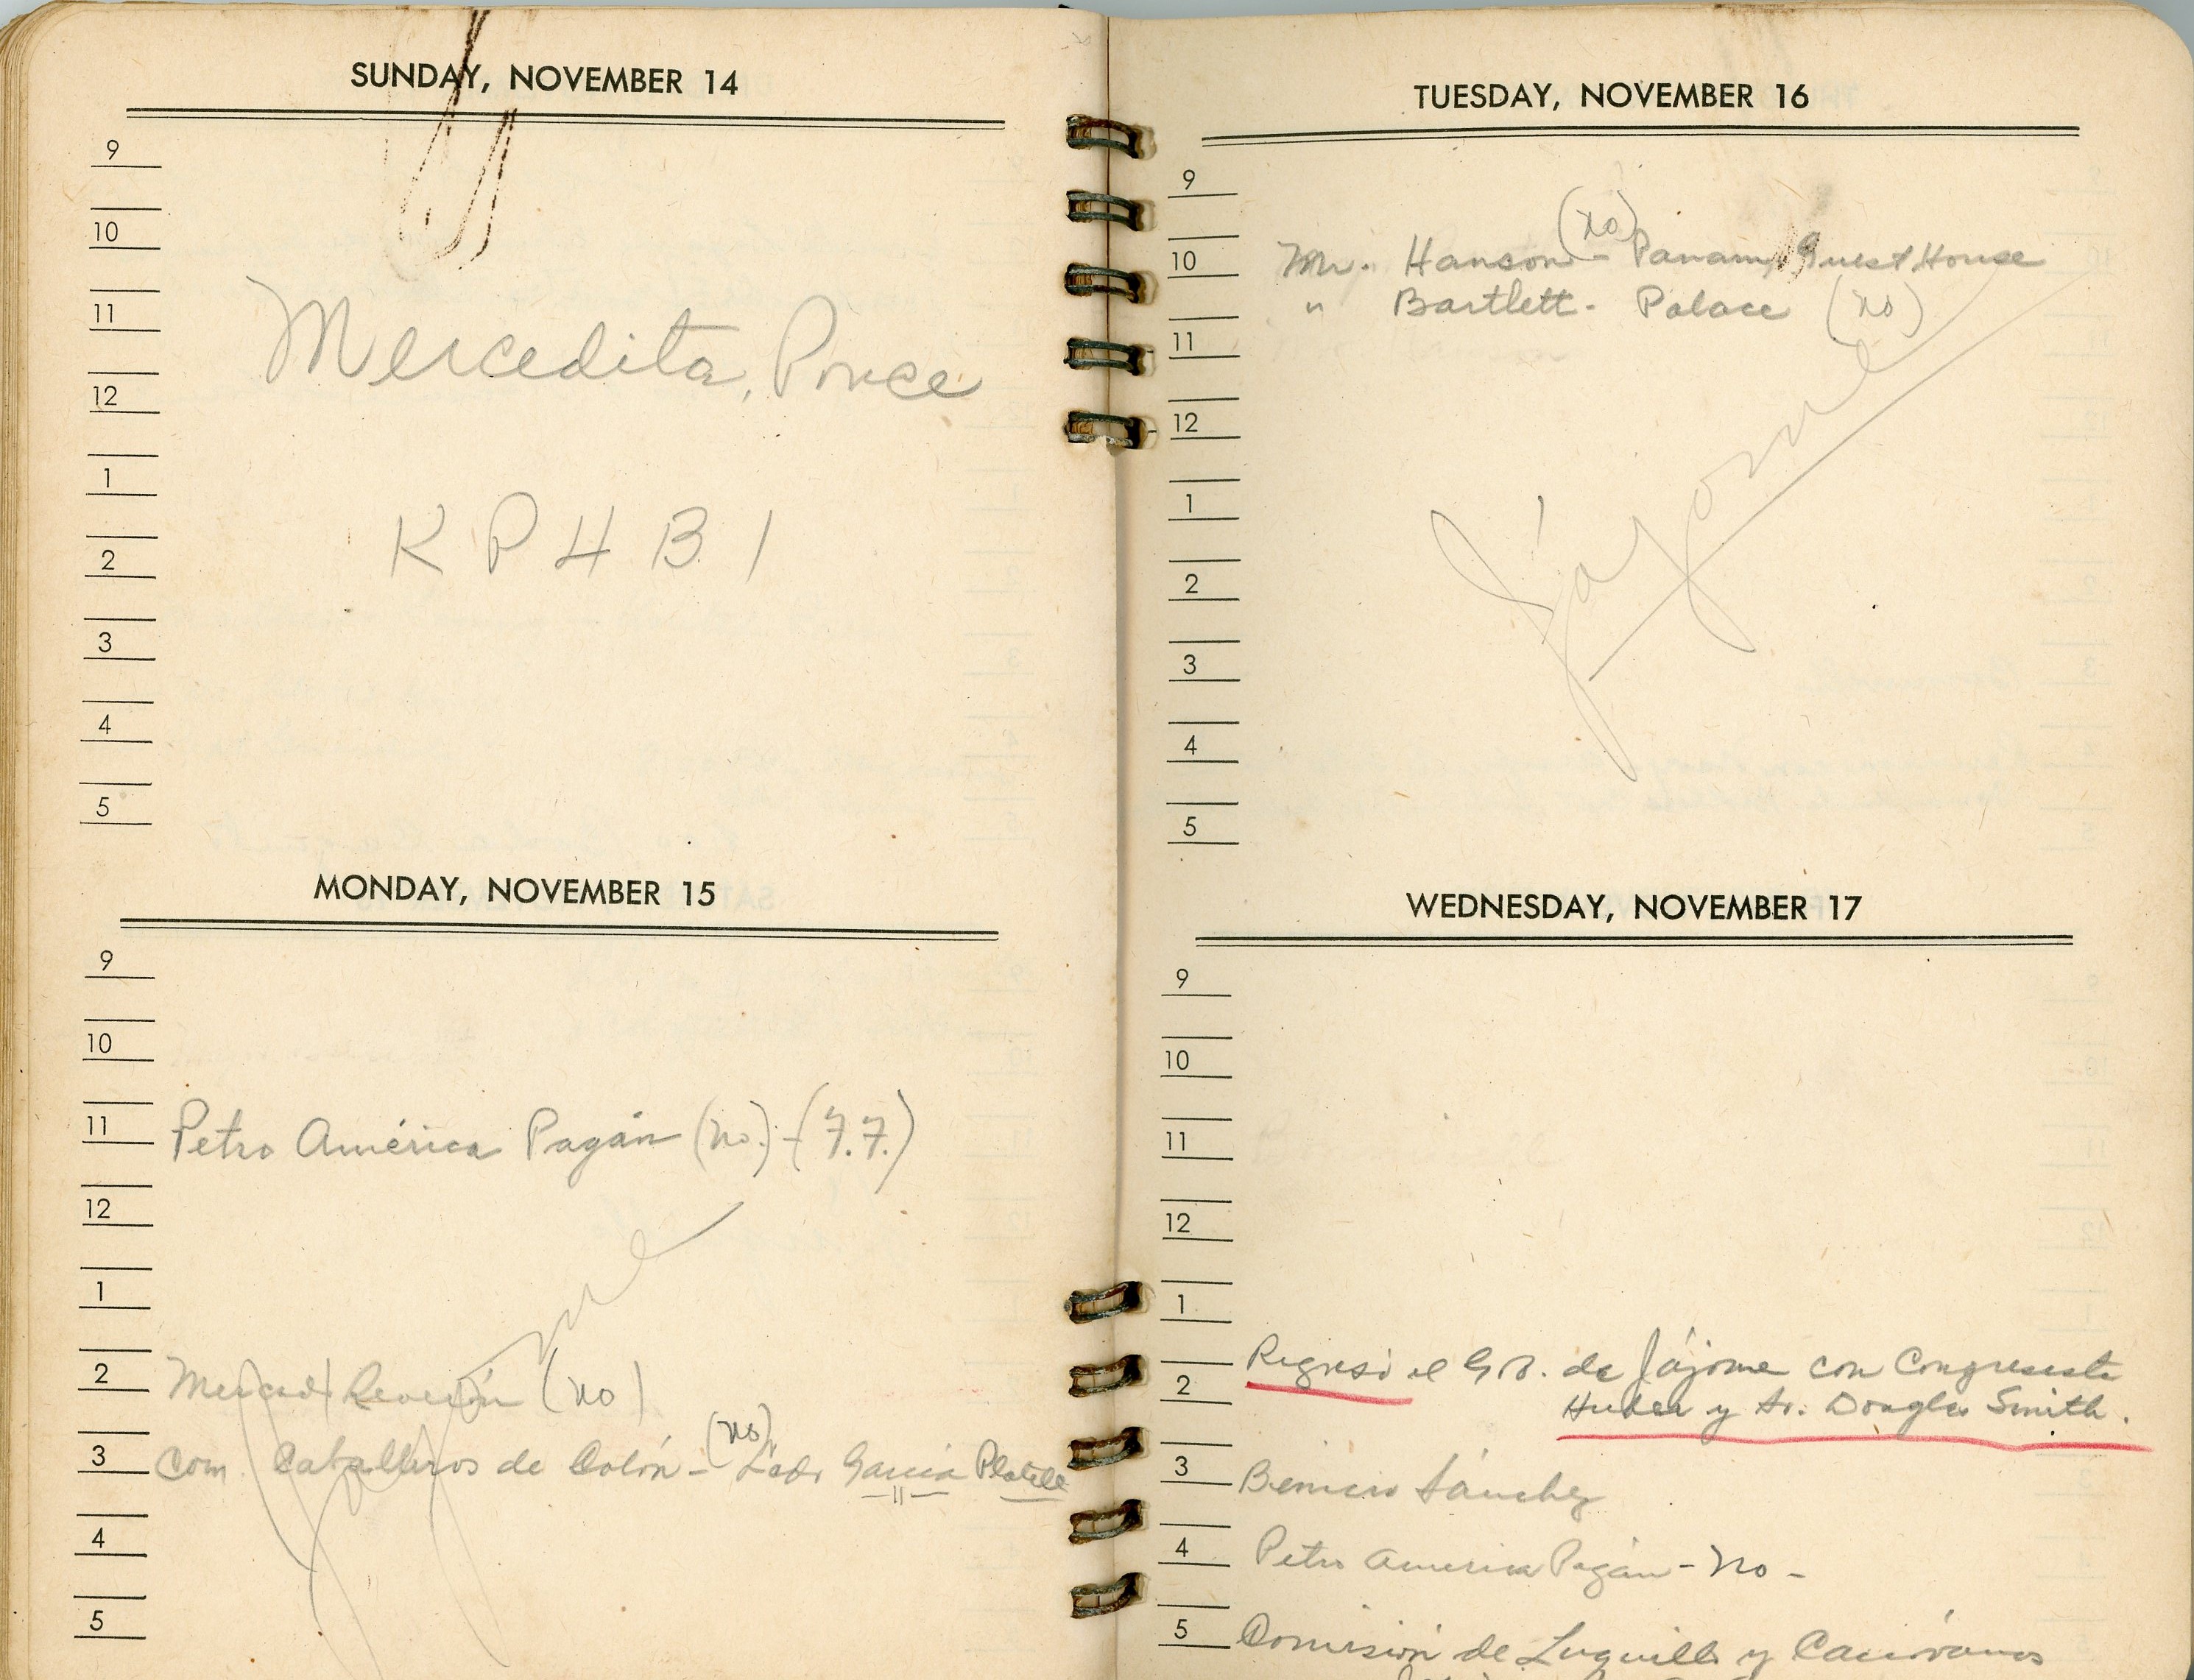 SUNDAY, NOVEMBER 14
9
10
11
Mercedita, Ponce
12
1
K P 4 B 1
2
3
4
5
MONDAY, NOVEMBER 15
9
10
11 Petro América Pagán (no.) - (F.F.)
12
1
Jájome
2 (no)
(no)
3 Com. Caballeros de Colón - Ledo García
4
5
TUESDAY, NOVEMBER 16
9
(no)
10 Mr. Hanson - Panam Guest House
" Bartlett - Palace (no)
11
12
Jájome
1
2
3
4
5
WEDNESDAY, NOVEMBER 17
9
10
11
12
1
Regresó el GB. de Jájome con Congresista
2 Huber y Sr. Douglas Smith.
3 Benicio Sánchez
4 Petro America Pagán - no -
5 Comisión de Luquillo y Canóvanas